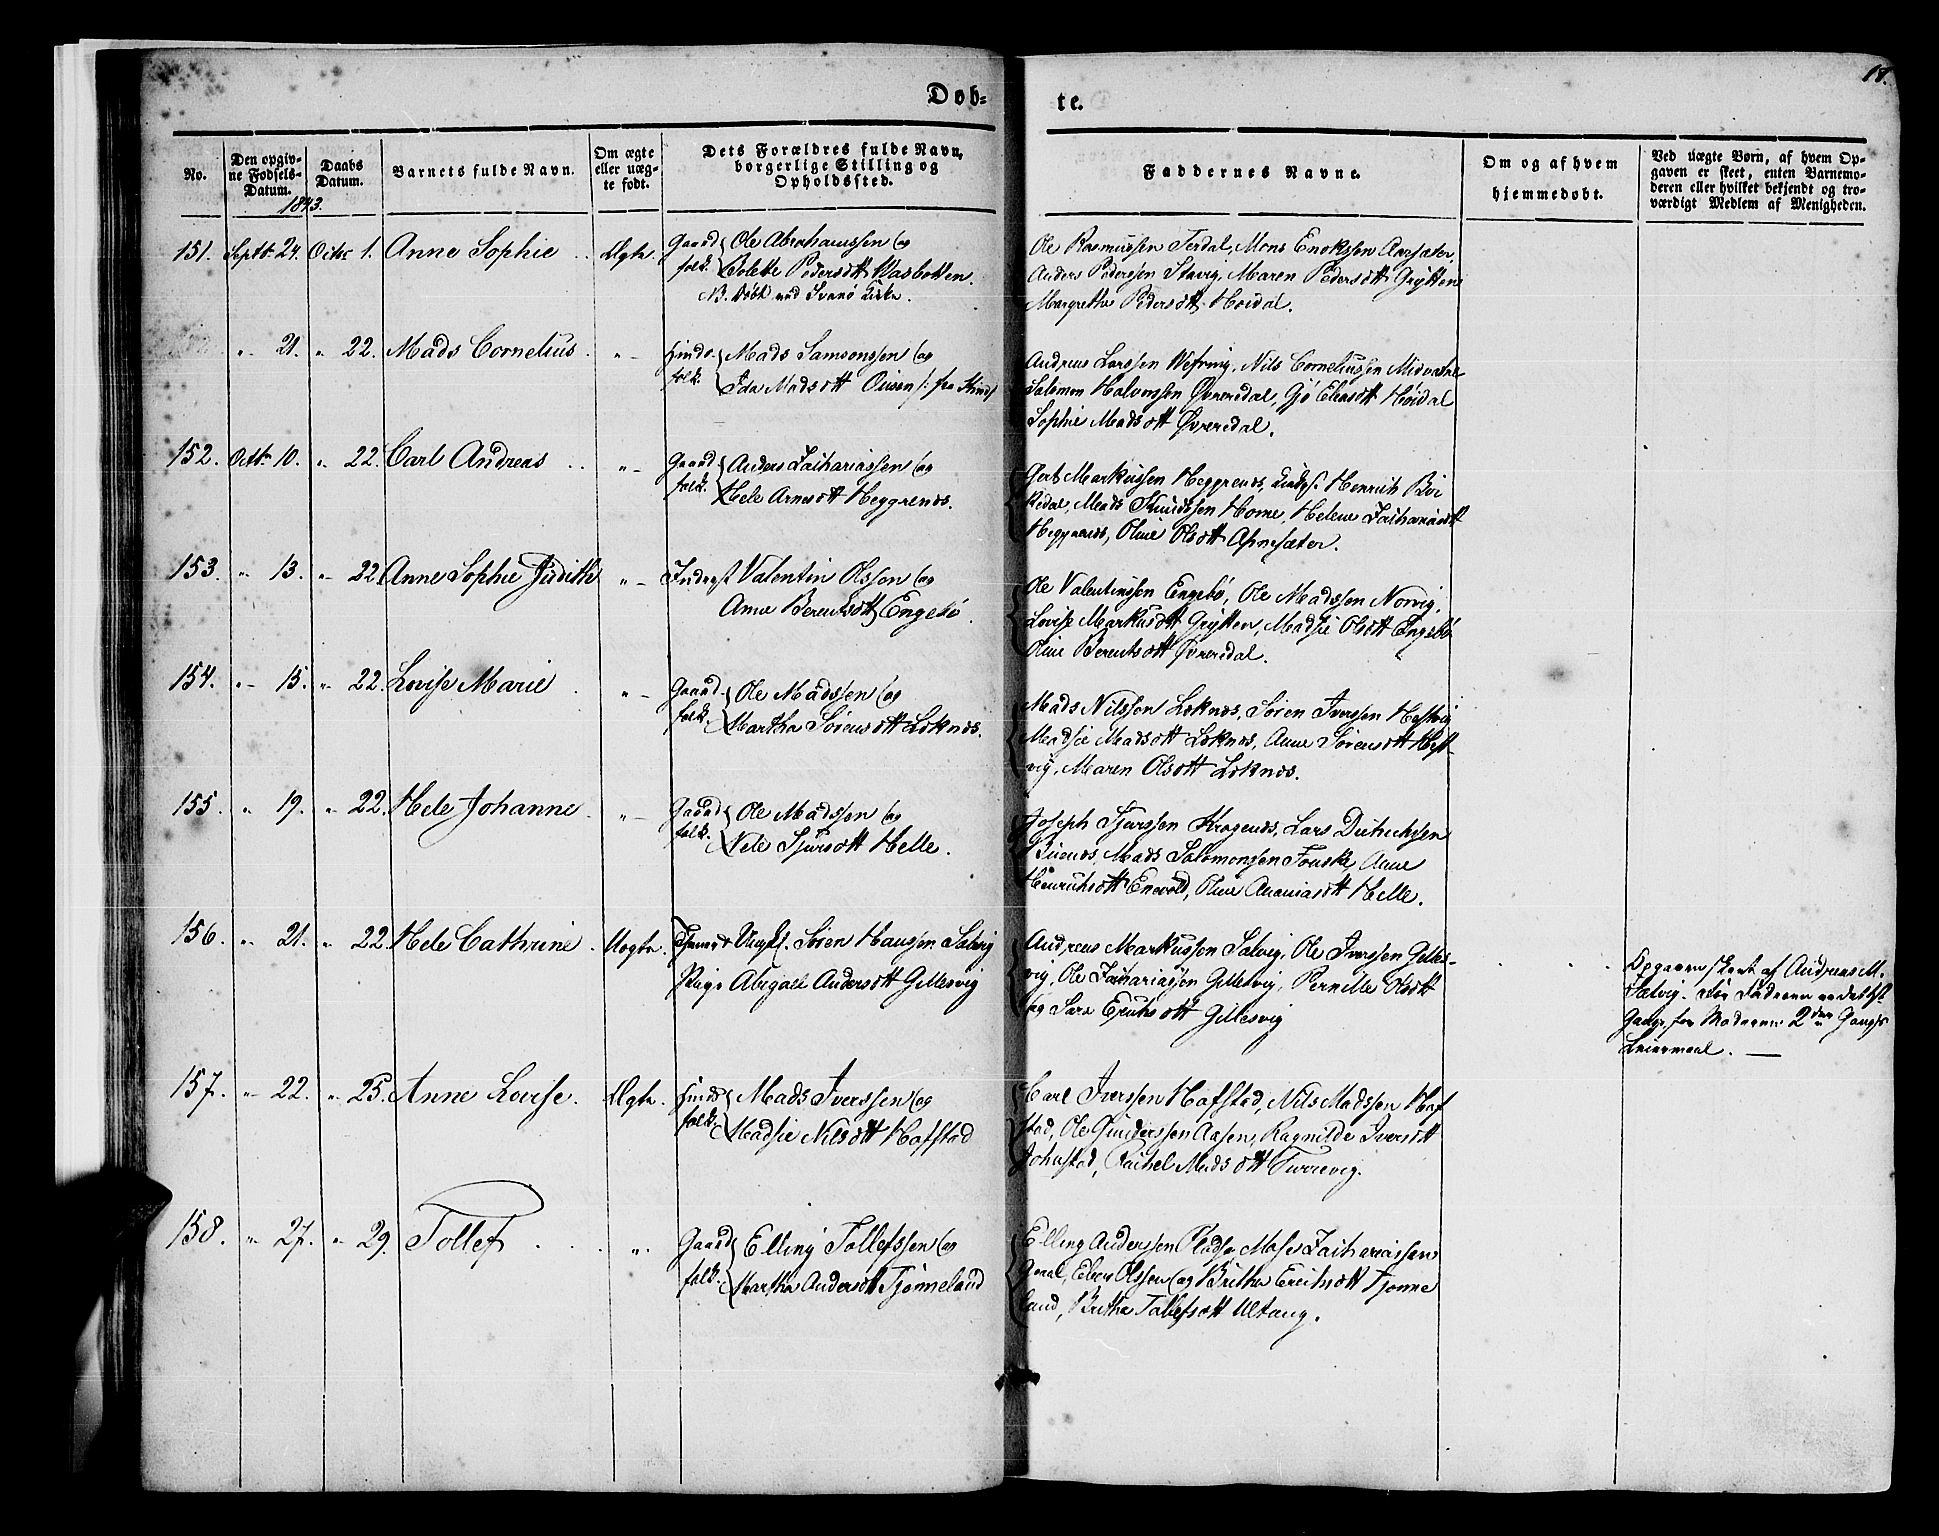 18.
Døb=
te.
No.
Den opgiv-
ne Fødsels-
Datum.
Daabs
Datum.
Barnets fulde Navn.
Om ægte
eller uæg-
te født.
Dets Forældres fulde Navn,
borgerlige Stilling og
Opholdssted.
Faddernes Navne.
Om og af hvem
hjemmedøbt.
Ved uægte Børn, af hvem Op-
gaven er skeet, enten Barnemo-
deren eller hvilket bekjendt og tro-
værdigt Medlem af Menigheden.
1843.
151. Septbr 24. Octbr 1. Anne Sophie Ægte. Gaard folk. Ole Abrahamssen og
Bolette Pedersdtt Vasbotten.
NB. Døbt ved Svanø Kirke.
Ole Rasmussen Terdal, Mons Enokssen Aarsæter,
Anders Pedersen Stavig, Maren Pedersdtt Grytten
Margrethe Pedersdtt Høidal.
" 21. " 22. Mads Cornelius. " Huus- folk. Mads Samsonssen og
Ida Madsdtt Ousen /: fra Kind
Andreas Larssen Wefring, Nils Corneliussen Midvatne
Salomon Halvorssen Øvreredal, Gjø Eliasdtt Høidal
Sophie Madsdtt Øvreredal.
152. Octbr 10. " 22. Carl Andreas " Gaard folk. Anders Zachariassen og
Hele Arnesdtt Heggenes.
Gert Markussen Heggenes, Henrich
Redal, Mads Knudssen Horne, Helene Zachariasdtt
Heggenes, Oline Olsdtt Asnesæter.
153. " 13. " 22. Anne Sophie Judith " Inderst Valentin Olsson og
Anne Berentsdtt Engebø.
Ole Valentinssen Engebø, Ole Madssen Norvig,
Lovise Markusdtt Grytten, Madsie Olsdtt Engebø
Oline Berentsdtt Øvreredal.
154. " 15. " 22. Lovise Marie " Gaard folk. Ole Madssen og
Martha Sørensdtt Loknes.
Mads Nilsson Loknes, Søren Iverssen Hestvig
Madsie Madsdtt Loknes, Anne Sørensdtt Hest-
vig, Maren Olsdtt Loknes.
155. " 19. " 22. Hele Johanne. " Gaard folk. Ole Madssen og
Nele Sjursdtt Helle.
Joseph Sjurssen Kragenes, Lars Diderichsen
Buenes, Mads Salomonsen Fonske, Anne
Henrichsdtt Enevold, Oline Ananiasdtt Helle.
156. " 21. " 22. Hele Cathrine. Uægte. Søren Hansen Sætvig
Pige Abigael Andersdtt Gillesvig
Andreas Markussen Sætvig, Ole Iverssen Gilles-
vig, Ole Zachariassen Gillesvig, Pernille Olsdtt
og Sara Erichsdtt Gillesvig
Opgaven skeet af Andreas M.
Sætvig. For Faderen er det 1ste
Gang, for Moderen 2den Gangs
Leiermaal.
157. " 22. " 25. Anne Lovise. Ægte. Huus folk. Mads Iverssen og
Madsie Nilsdtt Hafstad
Carl Iverssen Hafstad, Nils Madssen Haf
stad, Ole Gunderssen Aasen, Ragnilde Iversdtt
Johnstad, Rachel Madsdtt Turrevig.
158. " 27. " 29. Tollef " Gaard folk. Elling Tollefssen og
Martha Andersdtt Tjønneland
Elling Anderssen Pladse, Moses Zachariassen
Gaal, Eber Olssen og Britha Erichsdtt Tjønne
land, Britha Tollefsdtt Utaug.